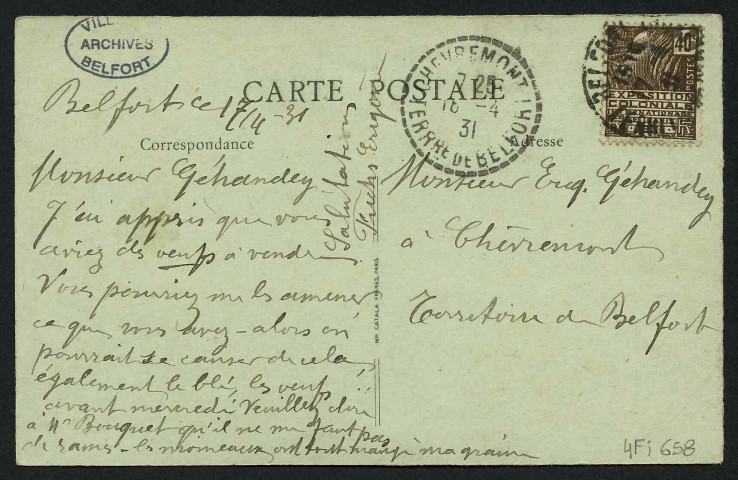 VILLE
ARCHIVES
BELFORT
CARTE POSTALE
CHEVREMONT
7 25
18 -4
31
TERRRE DE BELFORT
BELFORT
40c
POSTES
EXPOSITION
COLONIALE
INTERNATIONALE
Belfort ce 17/4-31
Correspondance
Adresse
Monsieur Géhandey
J'ai appris que vous
aviez des oeufs à vendre
Vous pourriez me les amener
ce que vous avez - alors on
pourrait se causer de cela,
également le blé, les oeufs
avant mercredi Veuillez dire
à Mr Bouquet qu'il ne me faut pas
de rames - les moineaux ont tout mangé ma graine
Salutations
Fuchs Eugène
Monsieur Eug. Géhandey
à Chèvremont
Territoire de Belfort
MP. CATALA FRÈRES, PARIS
4Fi 658